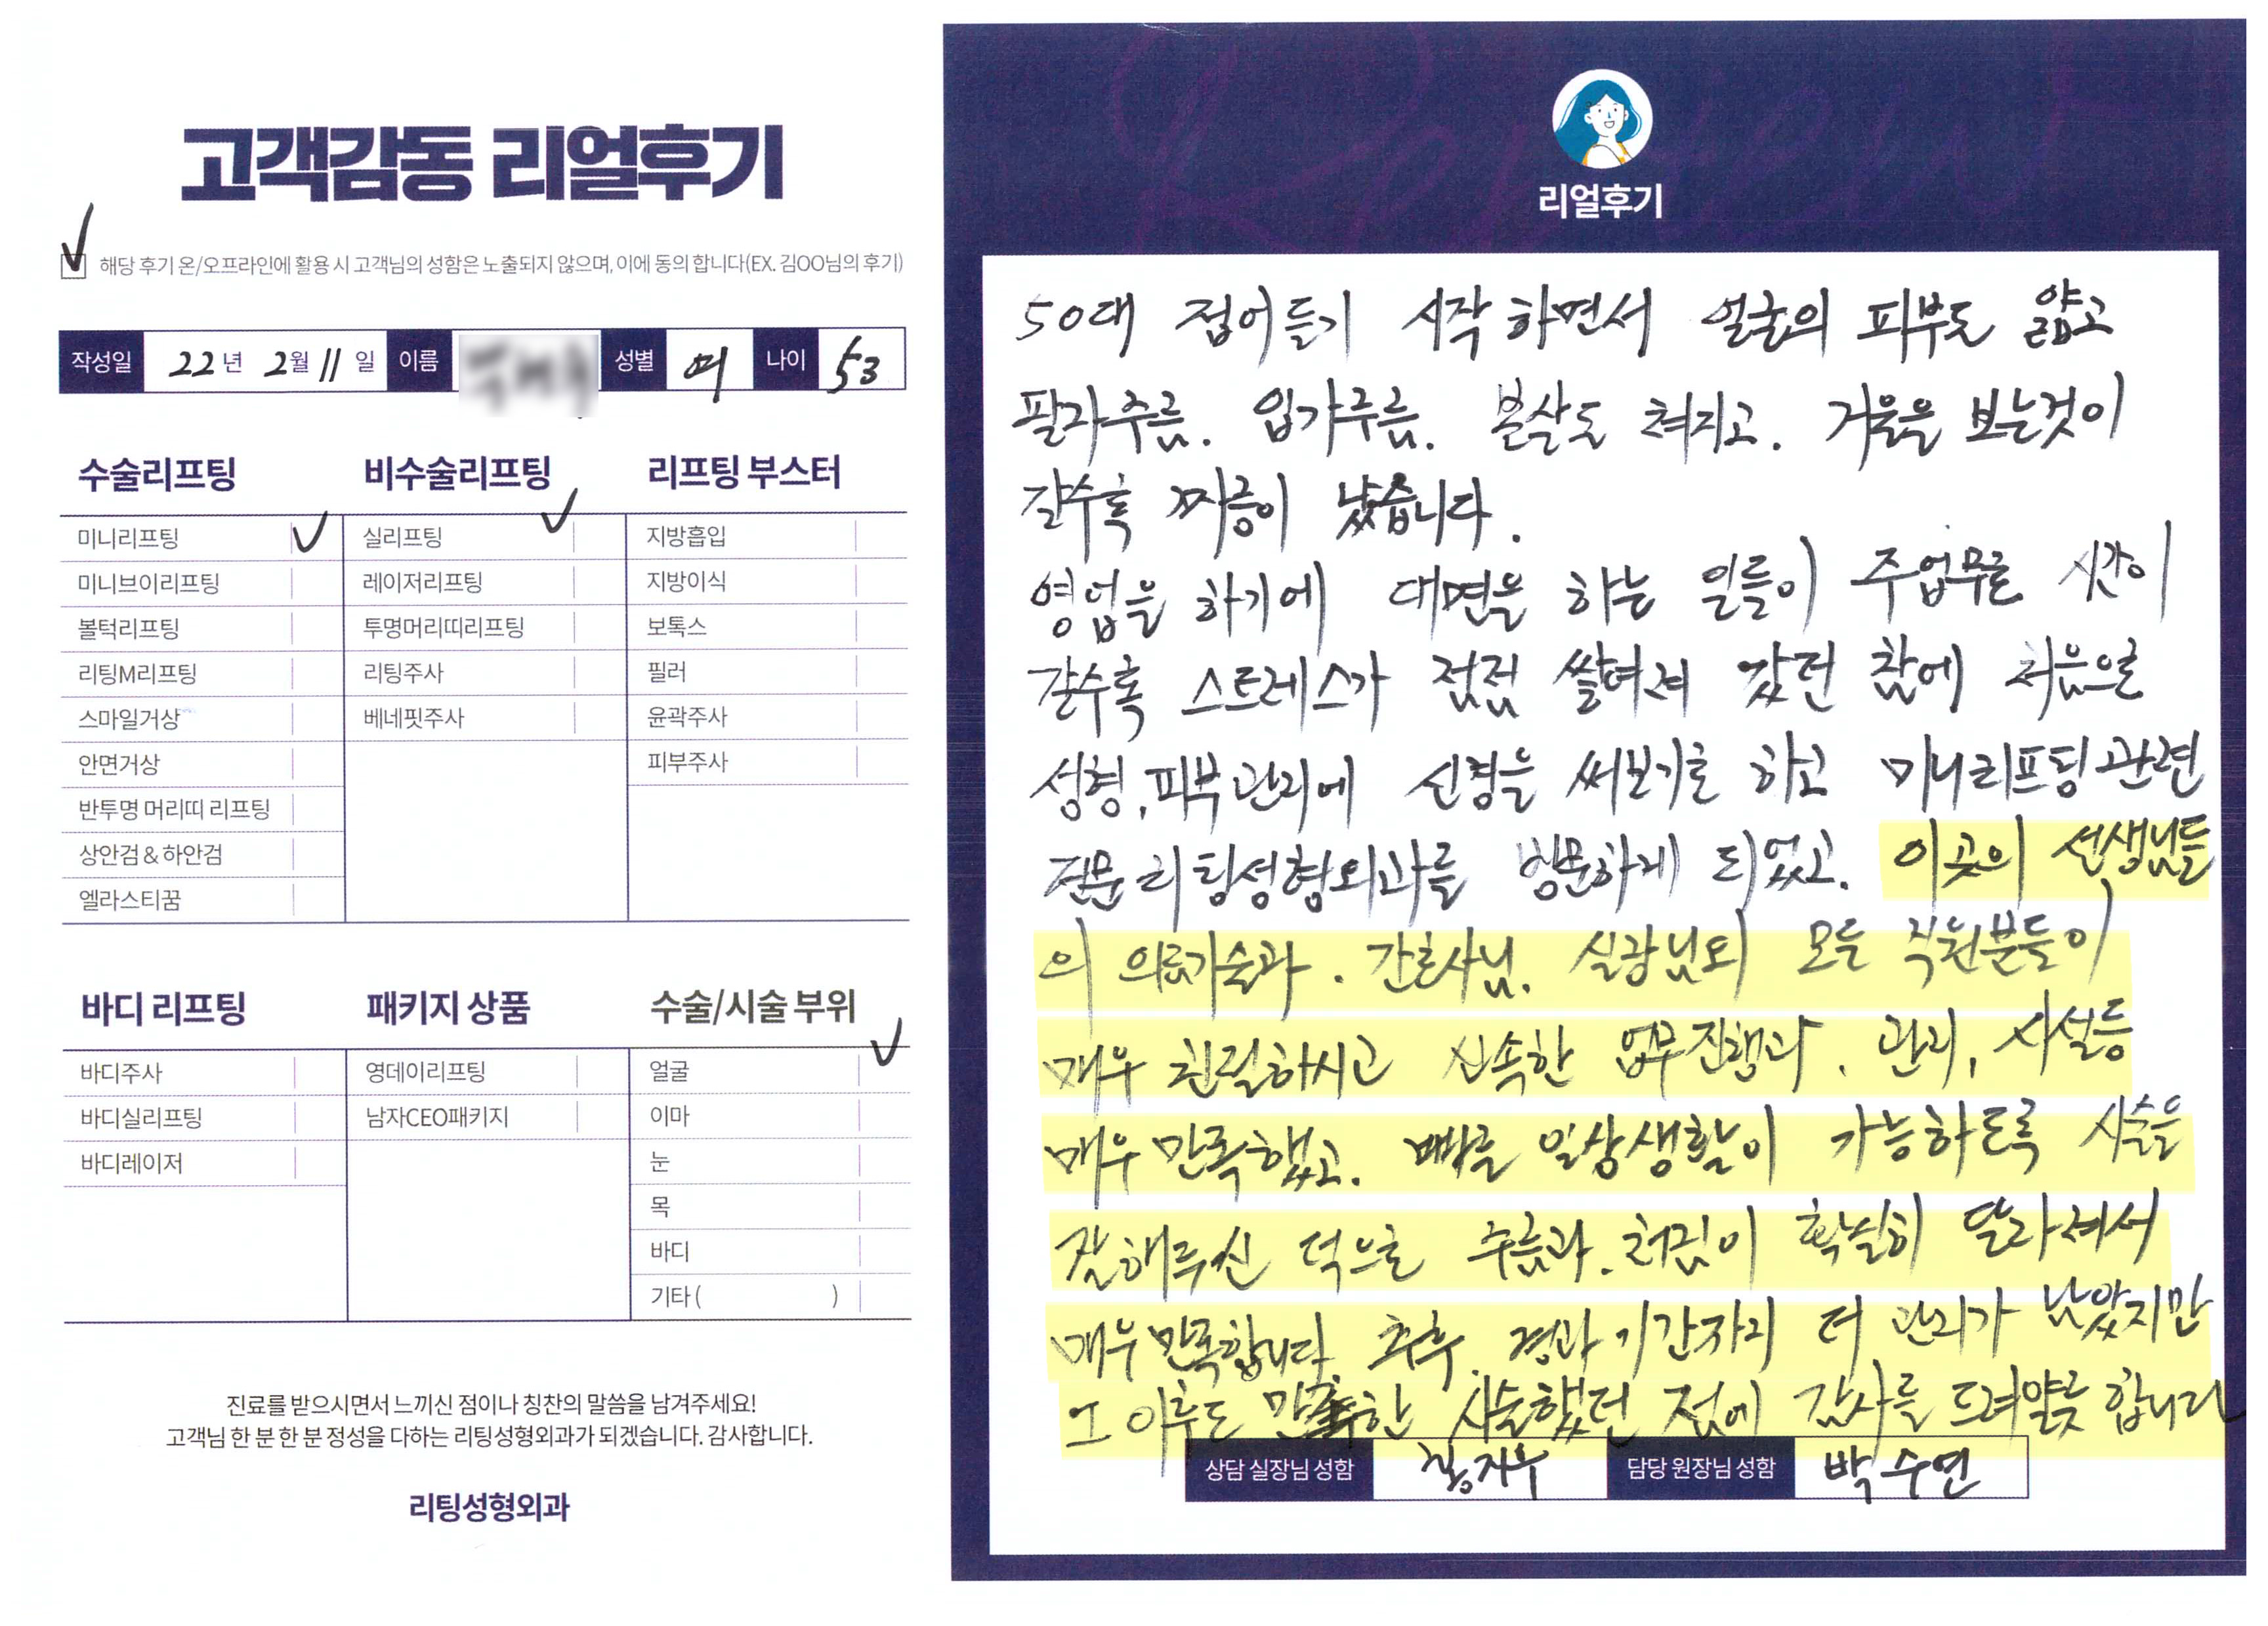 고객감동 리얼후기
해당 후기 온/오프라인에 활용 시 고객님의 성함은 노출되지 않으며, 이에 동의 합니다(EX. 김OO님의 후기)
작성일 22년 2월 11일 이름 성별 여 나이 53
수술리프팅
미니리프팅
미니브이리프팅
볼턱리프팅
리팅M리프팅
스마일거상
안면거상
반투명 머리띠 리프팅
상안검&하안검
엘라스티꿈
비수술리프팅
실리프팅
레이저리프팅
투명머리띠리프팅
리팅주사
베네핏주사
리프팅 부스터
지방흡입
지방이식
보톡스
필러
윤곽주사
피부주사
바디 리프팅
바디주사
바디실리프팅
바디레이저
패키지 상품
영데이리프팅
남자CEO패키지
수술/시술 부위
얼굴
이마
눈
목
바디
기타( )
진료를 받으시면서 느끼신 점이나 칭찬의 말씀을 남겨주세요!
고객님 한 분 한 분 정성을 다하는 리팅성형외과가 되겠습니다. 감사합니다.
리팅성형외과
리얼후기
50대 접어들기 시작하면서 얼굴의 피부도 얇고
팔자주름. 입가주름. 볼살도 쳐지고. 거울을 보는것이
갈수록 짜증이 났습니다.
영업을 하기에 대면을 하는 일들이 주업무로 시간이
갈수록 스트레스가 점점 쌓여져 갔던 참에 처음으로
성형,피부관리에 신경을 써보기로 하고 미니리프팅관련
전문 리팅성형외과를 방문하게 되었고. 이곳의 선생님들
의 의료기술과. 간호사님. 실장님외 모든 직원분들이
매우 친절하시고 신속한 업무진행과. 관리, 시설등
매우 만족했고. 빠른 일상생활이 가능하도록 시술을
잘해주신 덕으로 주름과. 처짐이 확실히 달라져서
매우만족합니다 추후. 경과기간까지 더 관리가 남았지만
그 이후도 만족한 시술했던 점에 감사를 드려야할듯 합니다
상담 실장님 성함 담당 원장님 성함 박수연